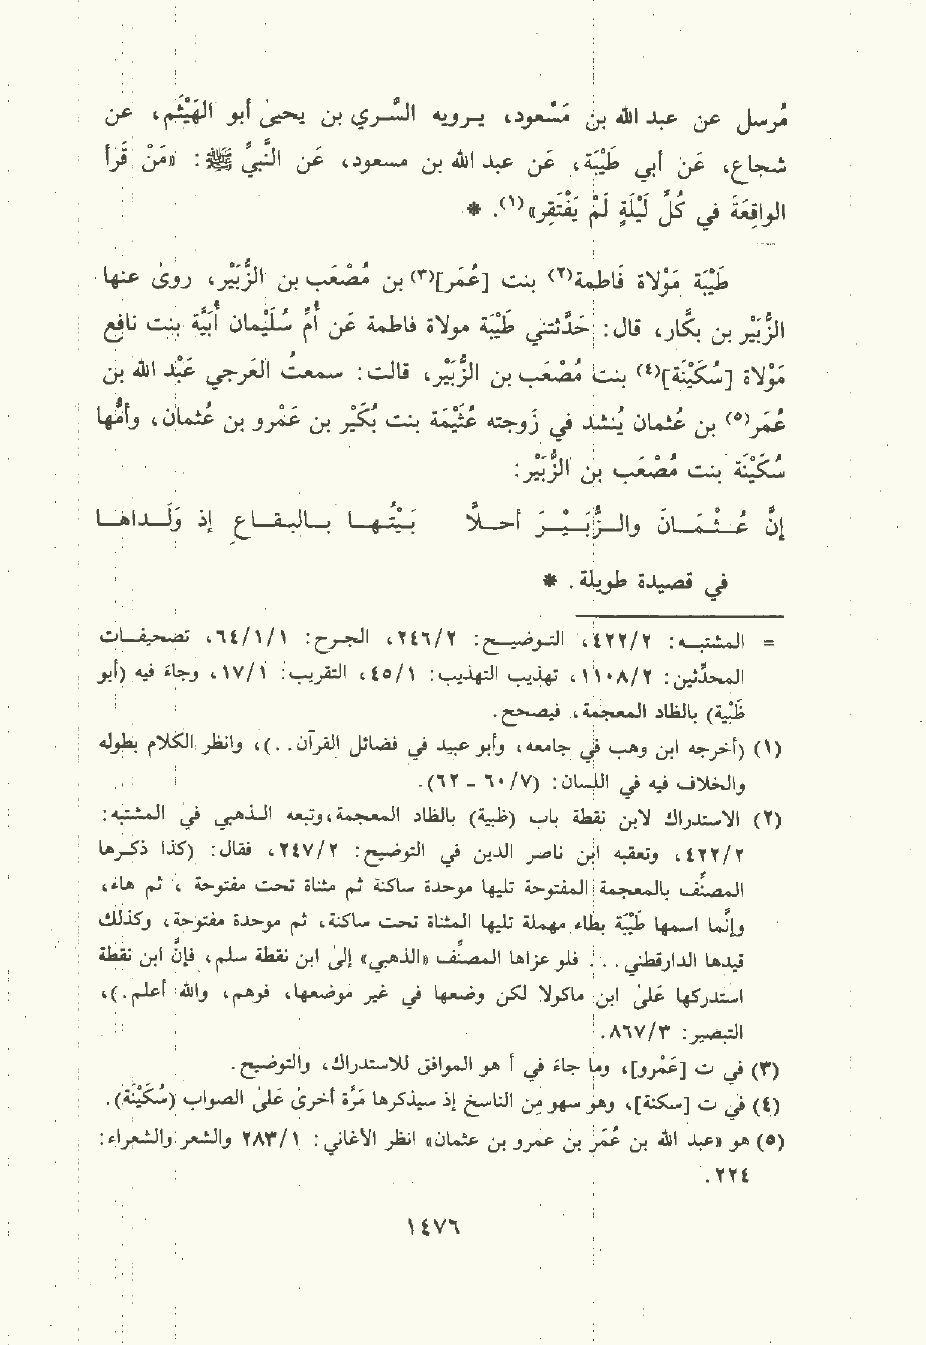 مُرسل عن عبد الله بن مَسْعود، يـرويه السَّري بن يحيىٰ أبو الهَيْثَم، عن
شجاع، عَن أبي طَيْبَة، عَن عبد الله بن مسعود، عَن النَّبيِّ ﷺ: «مَنْ قَرأ
الواقِعَة في كُلِّ لَيْلَةٍ لَمْ يَفْتَقِر»(١). *
طَيْبَة مَوْلاة فَاطمة(٢) بنت [عُمَر](٣) بن مُصْعَب بن الزُّبَيْر، روىٰ عنها
الزُّبَيْر بن بكَّار، قال: حَدَّثتني طَيْبَة مولاة فاطمة عَن أُمِّ سُلَيْمان أُبَيَّة بنت نافع
مَوْلاة [سُكَيْنَة](٤) بنت مُصْعَب بن الزُّبَيْر، قالت: سمعتُ العَرجي عَبْد الله بن
عُمَر(٥) بن عُثمان يُنشد في زَوجته عُثَيْمَة بنت بُكَيْر بن عَمْرو بن عُثمان، وأُمُّها
سُكَيْنَة بنت مُصْعَب بن الزُّبَيْر:
إنَّ عُـثْـمَـانَ والـزُّبَـيْـرَ أحـلَّا بَـيْتُـهـا بـاليـفـاعِ إذ وَلَـداهـا
في قصيدة طويلة. *
= المشتبـه: ٤٢٢/٢، التـوضيـح: ٢٤٦/٢، الجـرح: ٦٤/١/١، تصحيفـات
المحدِّثين: ١١٠٨/٢، تهذيب التهذيب: ٤٥/١، التقريب: ١٧/١، وجاءَ فيه (أبو
ظَبْية) بالظاد المعجمة، فيصحح.
(١) (أخرجه ابن وهب في جامعه، وأبو عبيد في فضائل القرآن. .)، وانظر الكلام بطوله
والخلاف فيه في اللسان: (٦٠/٧ - ٦٢).
(٢) الاستدراك لابن نقطة باب (ظبية) بالظاد المعجمة، وتبعه الـذهبي في المشتبه:
٤٢٢/٢، وتعقبه ابن ناصر الدين في التوضيح: ٢٤٧/٢، فقال: (كذا ذكـرها
المصنِّف بالمعجمة المفتوحة تليها موحدة ساكنة ثم مثناة تحت مفتوحة، ثم هاء،
وإنَّما اسمها طَيْبَة بطاء مهملة تليها المثناة تحت ساكنة، ثم موحدة مفتوحة، وكذلك
قيدها الدارقطني. . . ولو عزاها المصنِّف «الذهبي» إلىٰ ابن نقطة سلم، فإنَّ ابن نقطة
استدركها عَلىٰ ابن ماكولا لكن وضعها في غير موضعها، فوهم، والله أعلم.)،
التبصير: ٨٦٧/٣.
(٣) في ت [عَمْرو]، وما جاءَ في أ هو الموافق للاستدراك، والتوضيح.
(٤) في ت [سكنة]، وهو سهو مِن الناسخ إذ سيذكرها مَرَّة أخرىٰ عَلىٰ الصواب (سُكَيْنَة).
(٥) هو «عبد الله بن عُمَر بن عمرو بن عثمان» انظر الأغاني: ٢٨٣/١ والشعر والشعراء:
٢٢٤.
١٤٧٦